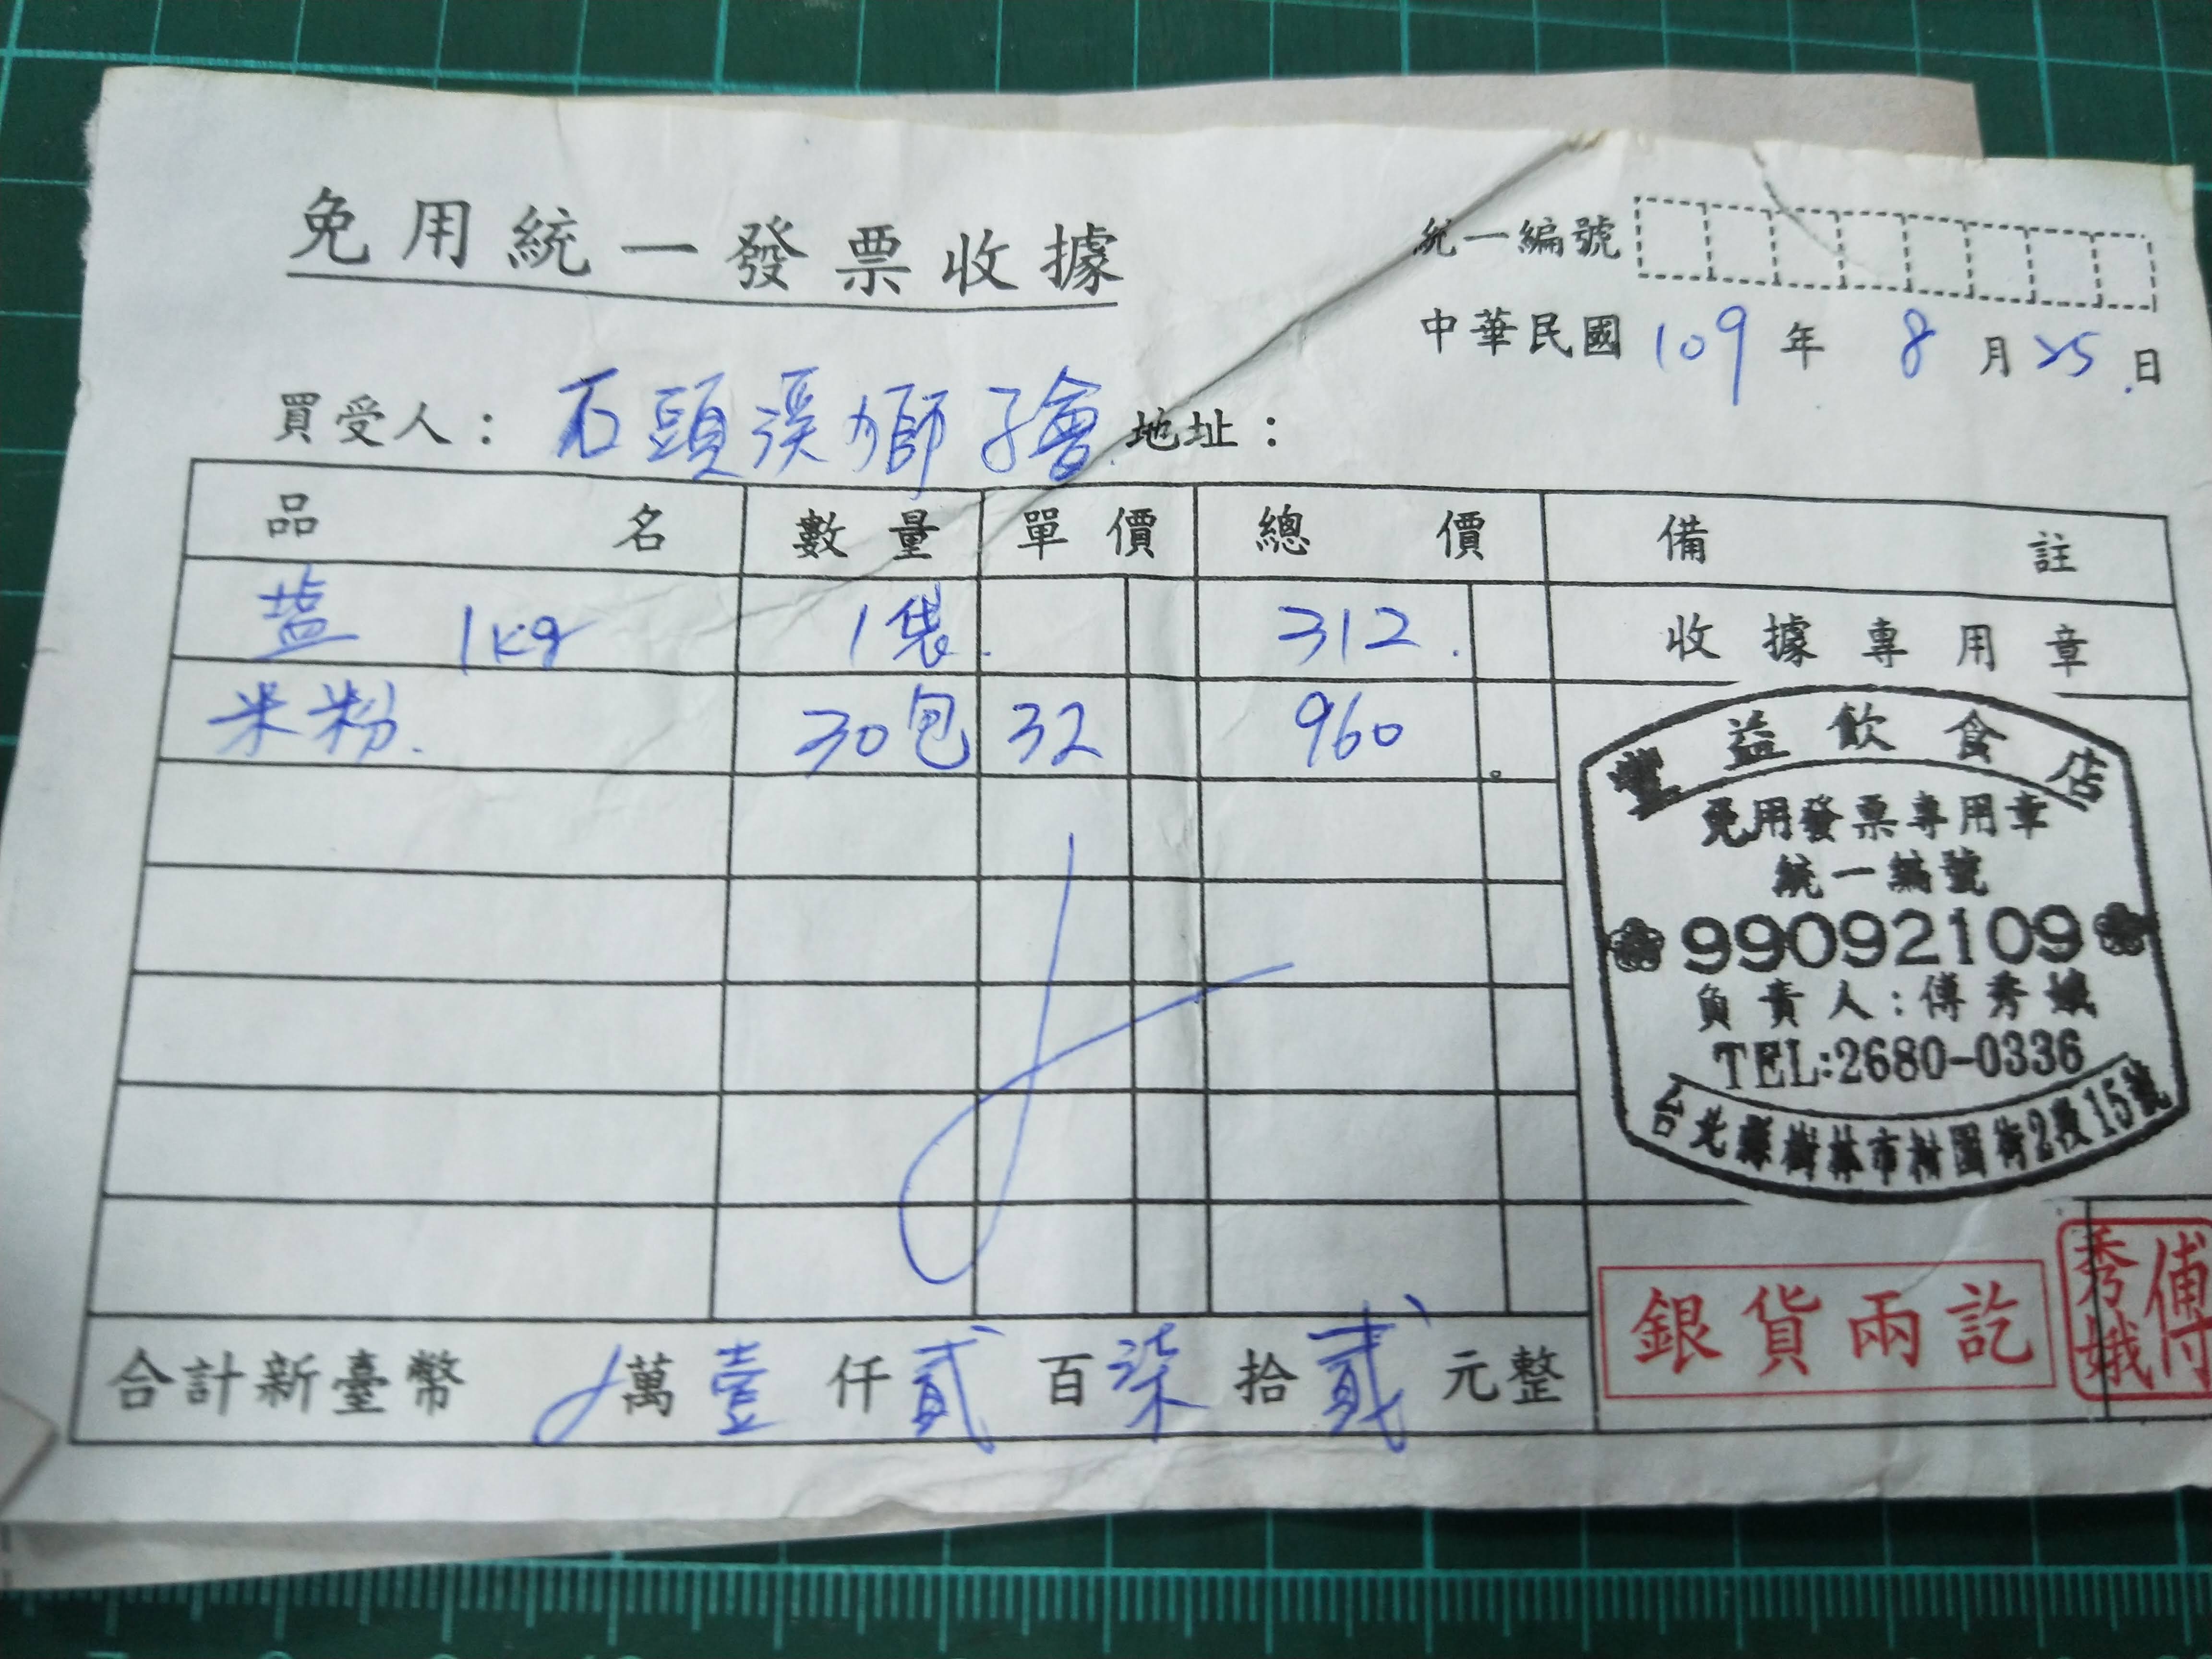 免用統一發票收據
統一編號
中華民國 109 年 8 月 25 日
買受人：石頭溪獅子會 地址：
品名 數量 單價 總價 備註
盐 1kg 1袋. 312. 收據專用章
米粉. 30包 32 960
豐益飲食店
免用發票專用章
統一編號
99092109
負責人:傅秀娥
TEL:2680-0336
台北縣樹林市柑園街2段15號
銀貨兩訖
傅秀娥
合計新臺幣 萬壹仟貳百柒拾貳元整